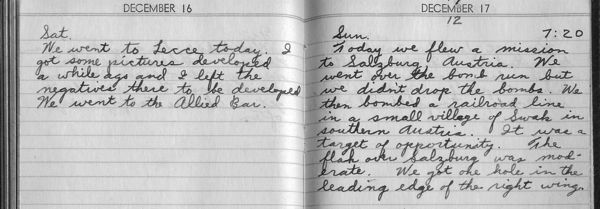 DECEMBER 16
Sat.
We went to Lecce today. I
got some pictures developed
a while ago and I left the
negatives there to be developed
We went to the Allied Bar.
DECEMBER 17
12
Sun. 7:20
Today we flew a mission
to Salzburg, Austria. We
went over the bomb run but
we didn't drop the bombs. We
then bombed a railroad line
in a small village of Swak in
southern Austria. It was a
target of opportunity. The
flak over Salzburg was mod-
erate. We got one hole in the
leading edge of the right wing.